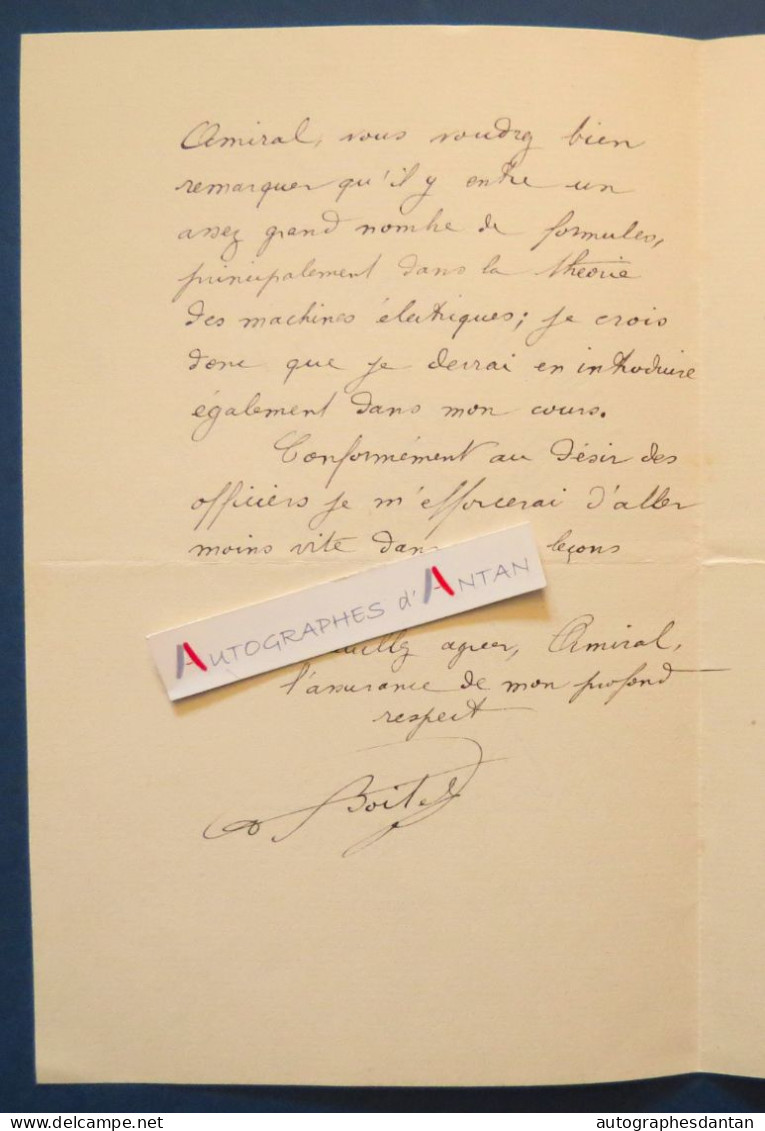 Amiral, vous voudrez bien
remarquer qu'il y entre un
assez grand nombre de formules,
principalement dans la théorie
des machines électriques; je crois
donc que je devrai en introduire
également dans mon cours.
Conformément au désir des
officiers je m'efforcerai d'aller
moins vite dans leçons
AUTOGRAPHES d'ANTAN
agréer, Amiral,
l'assurance de mon profond
respect
Boitel
autographesdantan